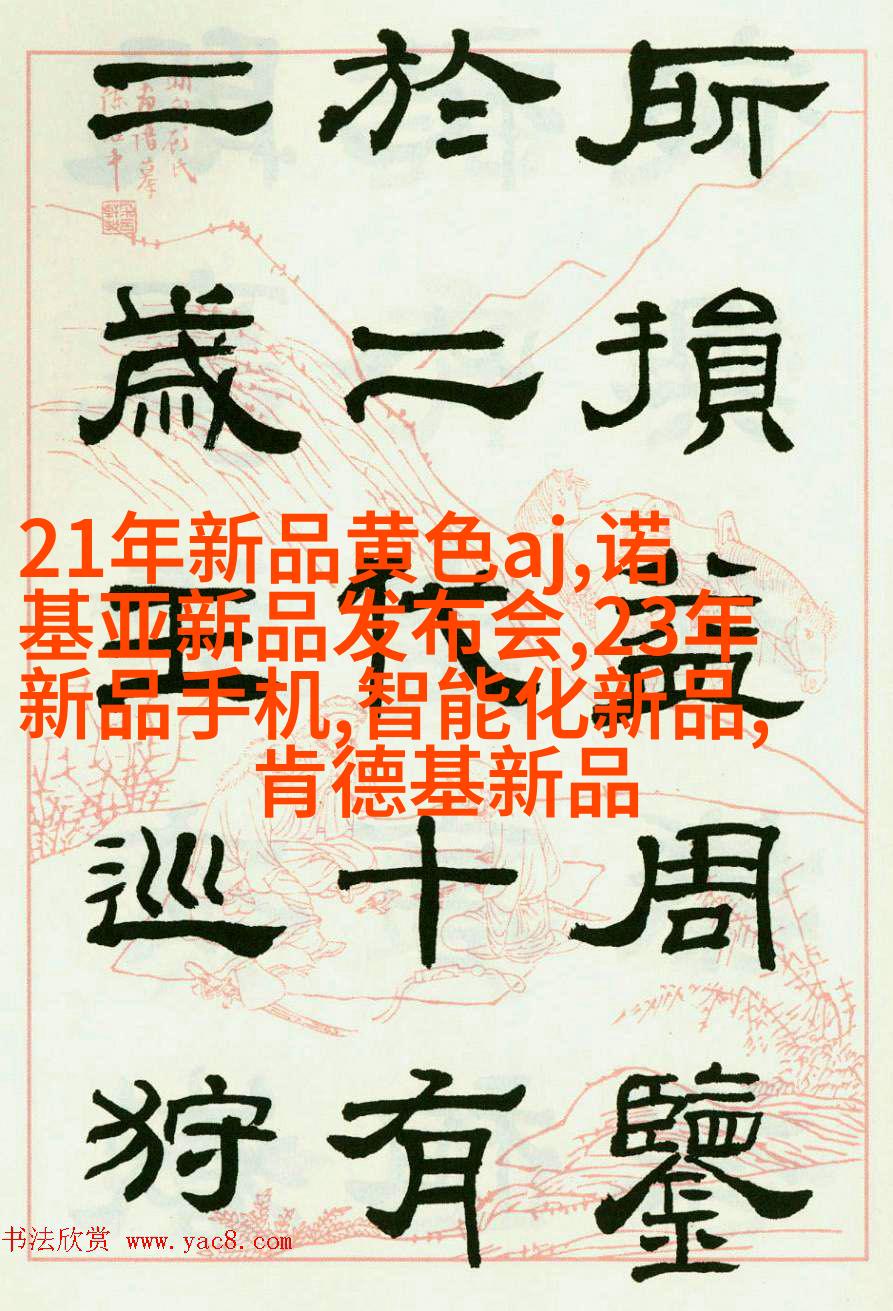 所損益周鑒
於二代十有
二歲王巡狩
21年新品黄色aj,诺
基亚新品发布会,23年
新品手机,智能化新品,
肯德基新品
书法欣赏 www.yac8.com